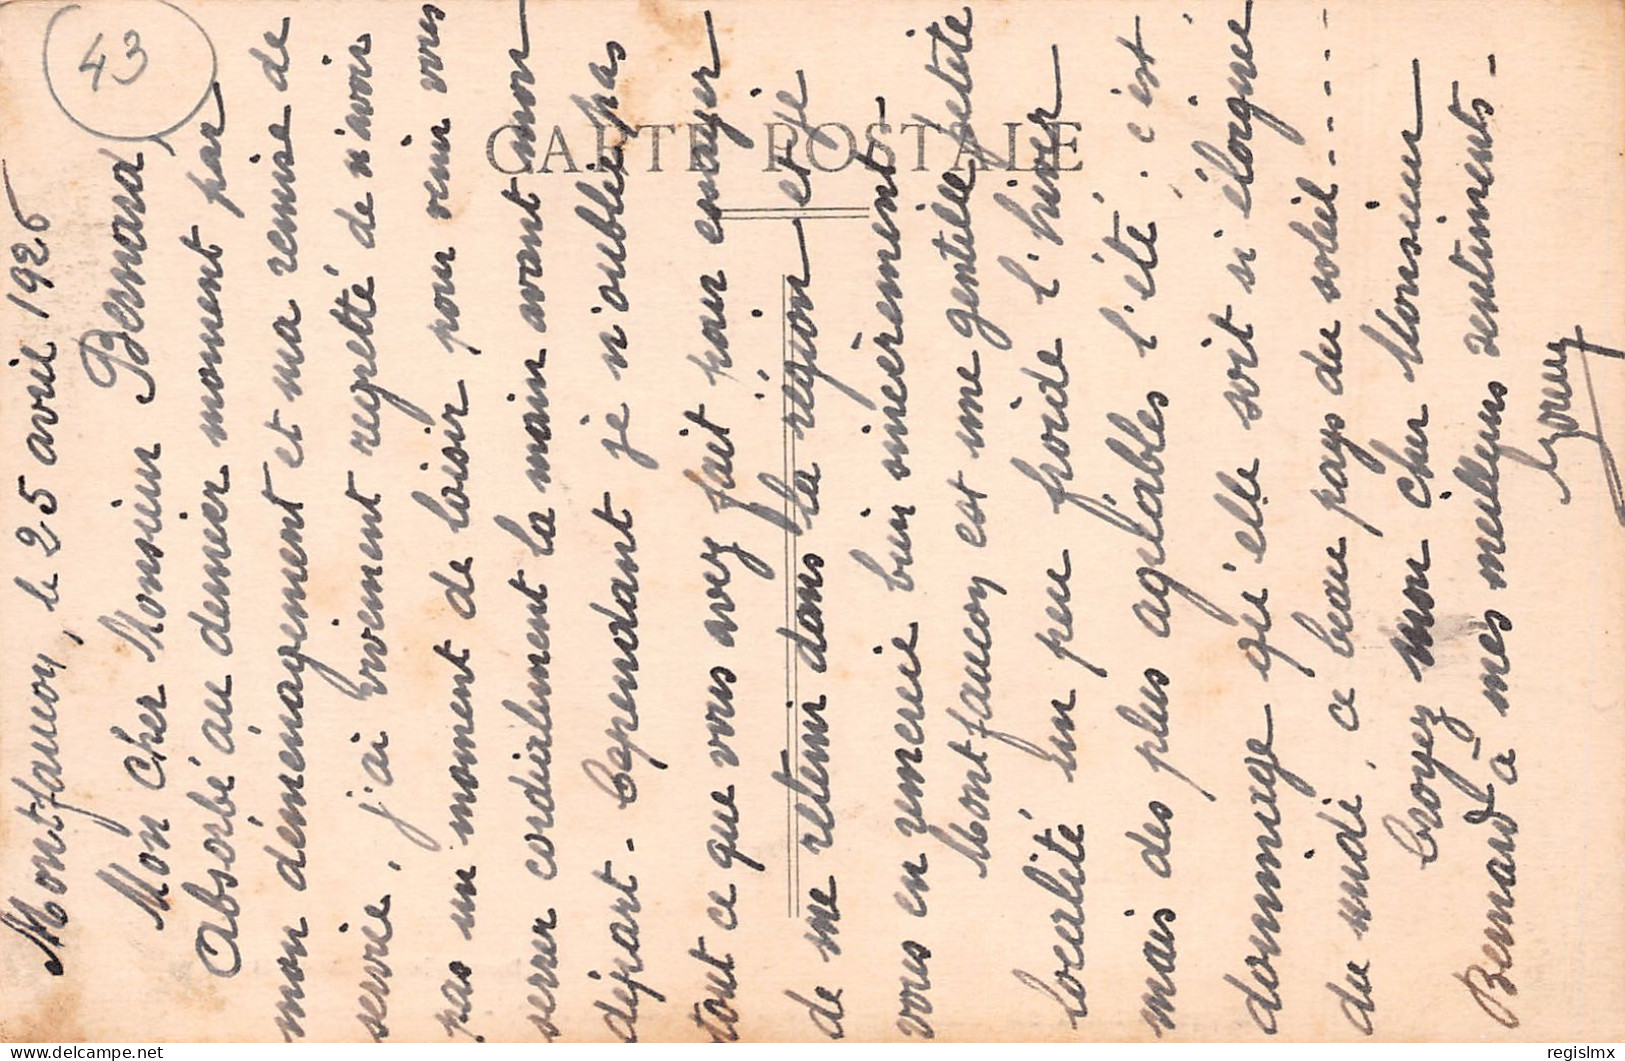 43
CARTE POSTALE
Montfaucon, le 25 avril 1926
Mon Cher Monsieur Bernard,
Absorbé au dernier moment par
mon déménagement et ma remise de
service, j'ai vivement regretté de n'avoir
pas un moment de loisir pour venir vous
serrer cordialement la main avant mon
départ. Cependant je n'oublie pas
tout ce que vous avez fait pour essayer
de me retenir dans la région et je
vous en remercie bien sincèrement.
Montfaucon est une gentille petite
localité un peu froide l'hiver
mais des plus agréables l'été. c'est
dommage qu'elle soit si éloignée
du midi, ce beau pays du soleil.....
Croyez mon cher Monsieur
Bernard à mes meilleurs sentiments.
regislmx